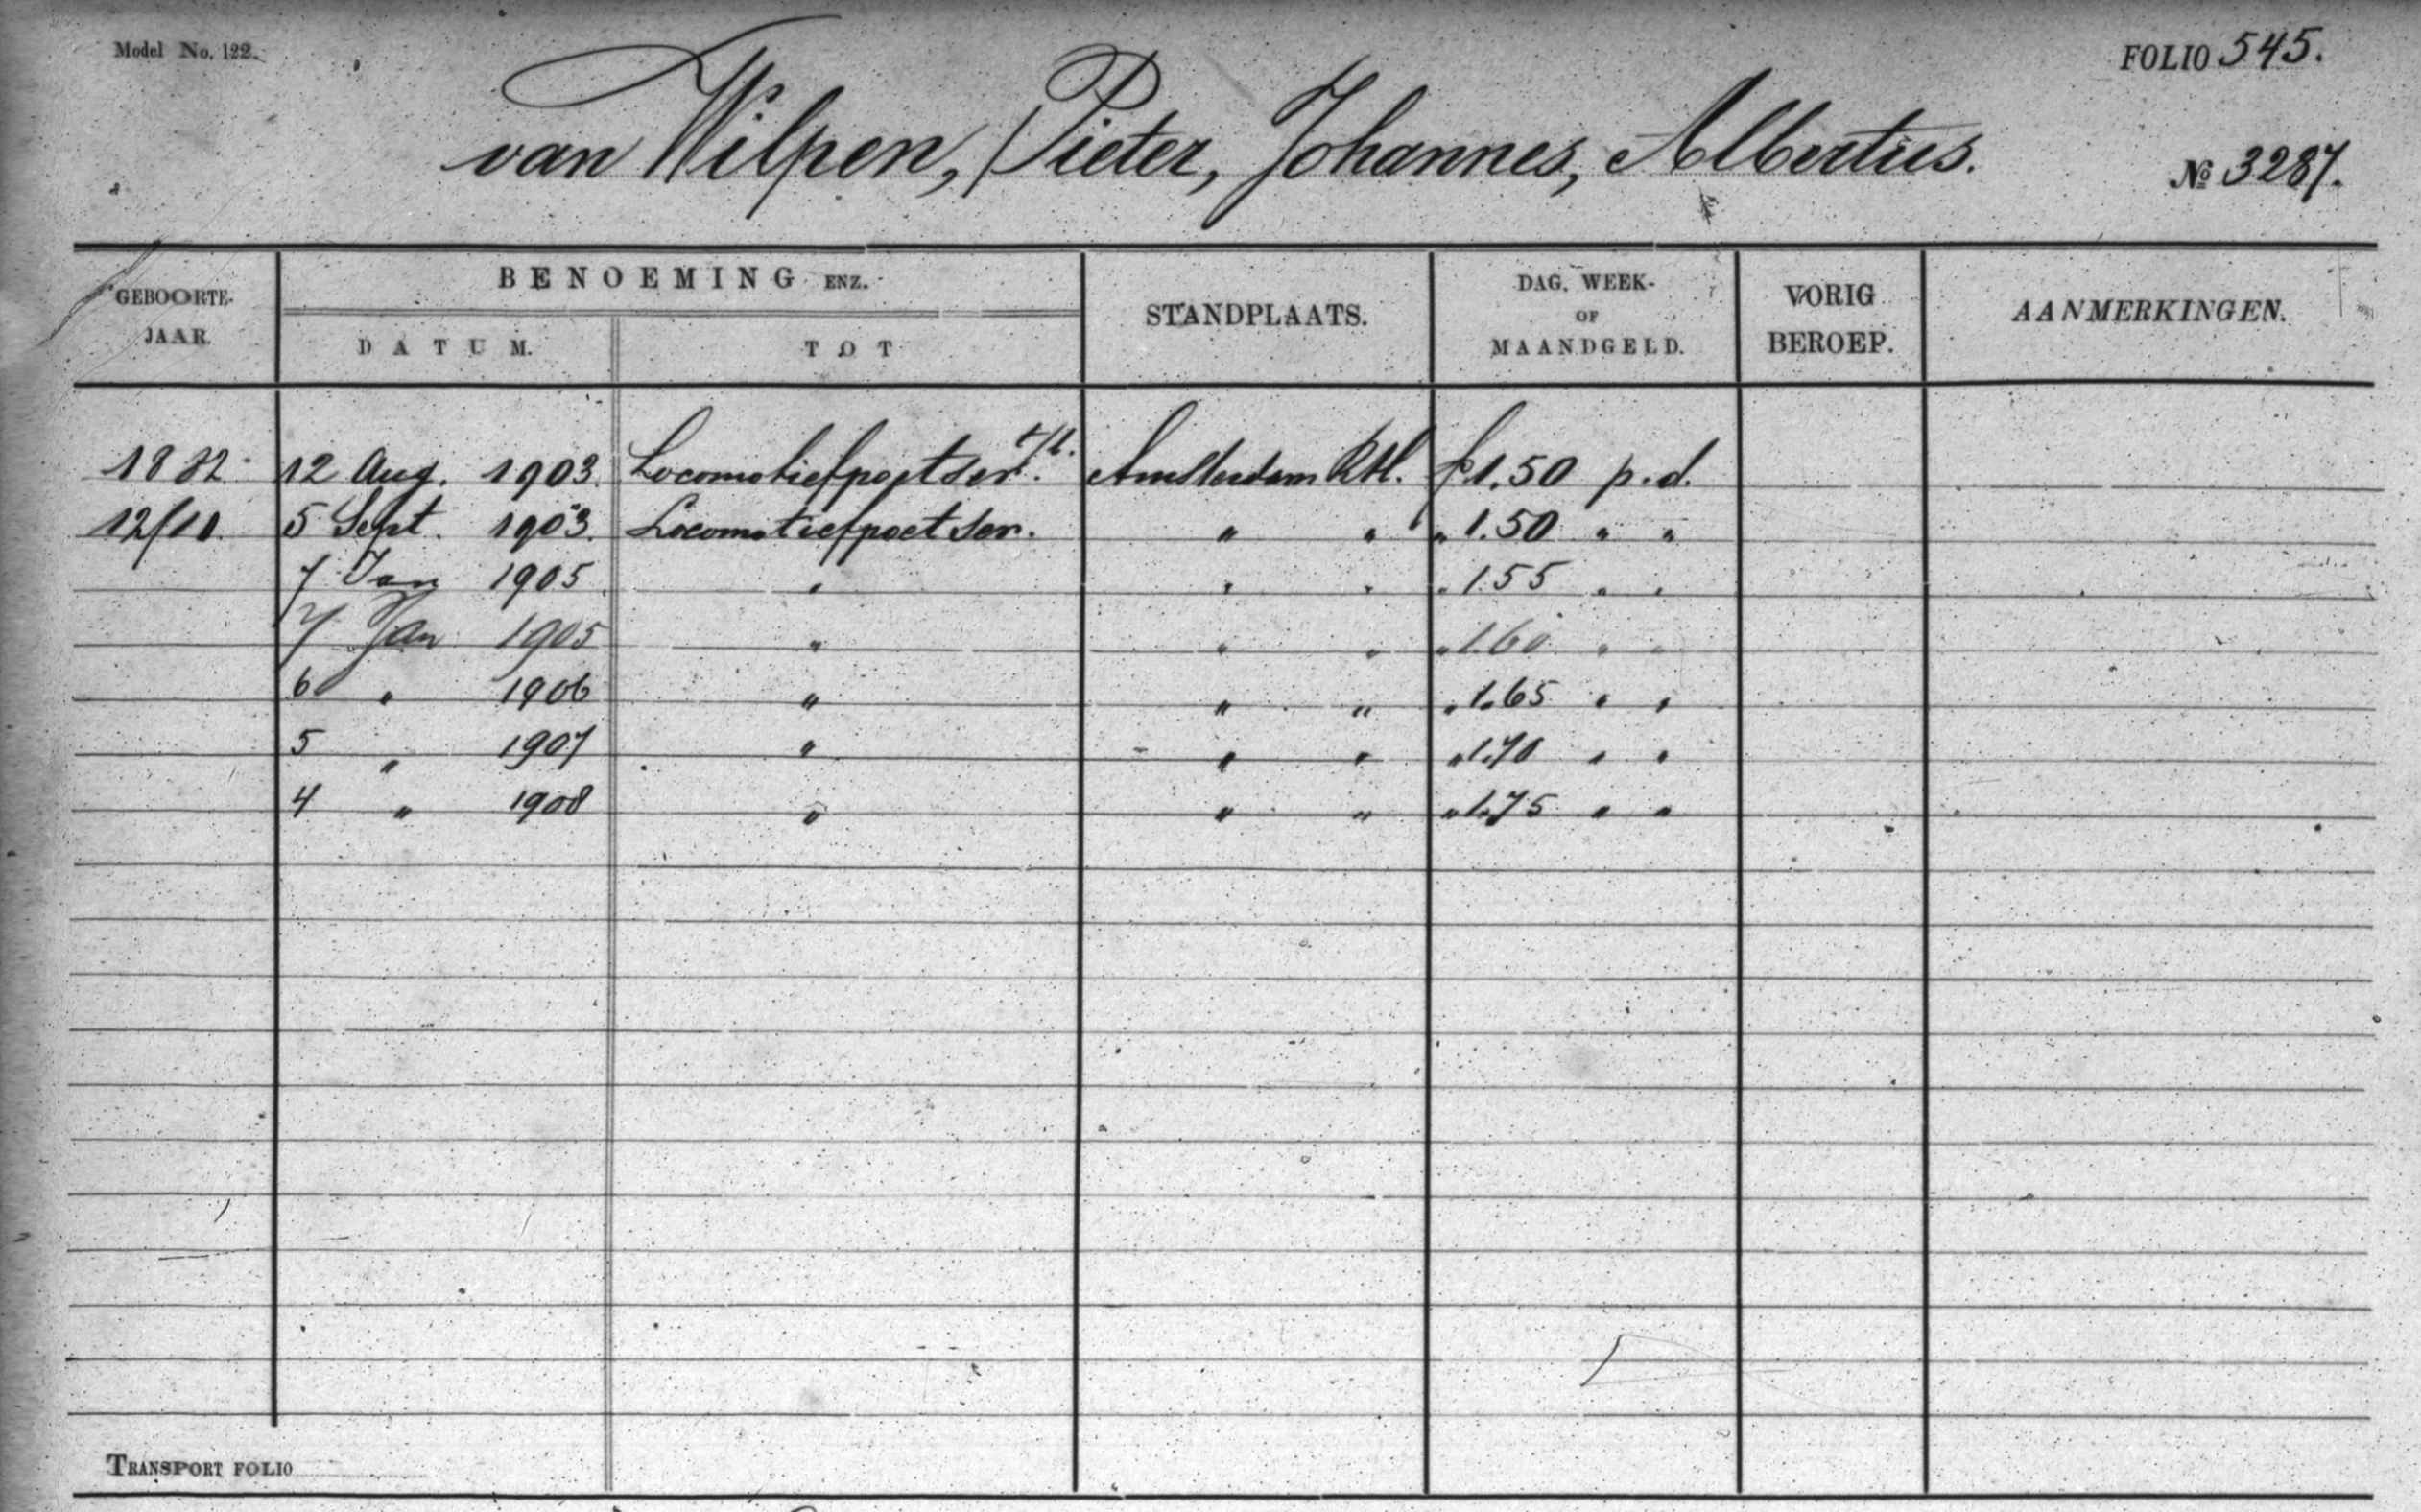 Model No. 122.
FOLIO 545.
van Wilpen, Pieter, Johannes, Albertus.
№ 3287.
GEBOORTE-JAAR.
BENOEMING ENZ.
DATUM.
TOT
STANDPLAATS.
DAG, WEEK- OF MAANDGELD.
VORIG BEROEP.
AANMERKINGEN.
1882 12 Aug. 1903. Locomotiefpoetser t/t. Amsterdam RM. f 1.50 p.d.
12/10. 5 Sept. 1903. Locomotiefpoetser. " " " 1.50 " "
7 Jan 1905 " " " " 1.55 " "
7 Jan 1905 " " " " 1.60 " "
6 " 1906 " " " " 1.65 " "
5 " 1907 " " " " 1.70 " "
4 " 1908 " " " " 1.75 " "
TRANSPORT FOLIO